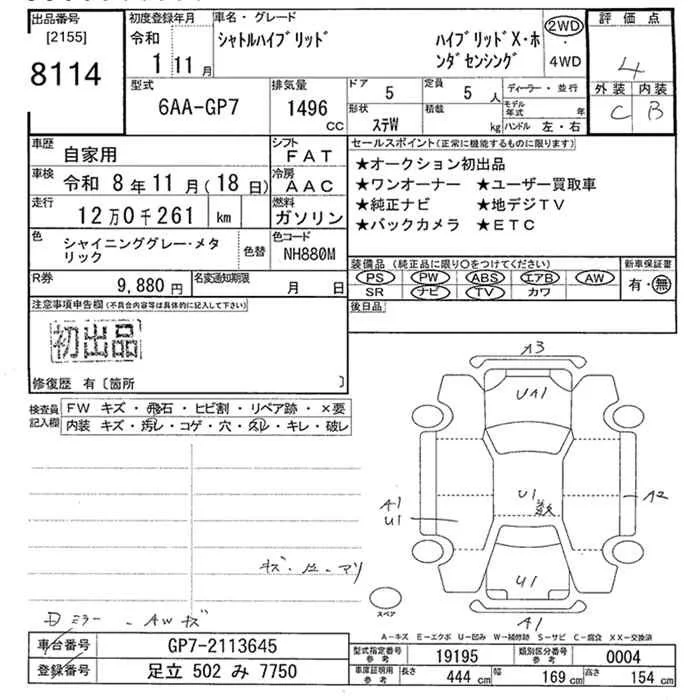 出品番号 [2155] 8114
初度登録年月 令和 1年 11月
車名・グレード
シャトルハイブリッド ハイブリッドX・ホンダセンシング
2WD・4WD
評価点 4
外装 C 内装 B
型式 6AA-GP7
排気量 1496 CC
ドア 5
定員 5 人
形状 ステW
積載 kg
ディーラー・並行
モデル年式 年
ハンドル 左・右
車歴 自家用
シフト FAT
車検 令和 8年 11月(18日)
冷房 AAC
走行 12万0千261 km
燃料 ガソリン
色 シャイニンググレー・メタリック
色替
色コード NH880M
R券 9,880円
名変通知期限 月 日
セールスポイント(正常に機能するものに限ります)
★オークション初出品
★ワンオーナー ★ユーザー買取車
★純正ナビ ★地デジTV
★バックカメラ ★ETC
装備品(純正品に限り○をつけてください)
PS PW ABS エアB AW
SR ナビ TV カワ
新車保証書 有・無
後日品
注意事項申告欄(不具合内容等は具体的に記入して下さい)
初出品
修復歴 有〔箇所 〕
検査員記入欄
FW キズ・飛石・ヒビ割・リペア跡・×要
内装 キズ・汚レ・コゲ・穴・スレ・キレ・破レ
A3
UA1
U1
数
A2
A1
U1
U1
A1
スペア
Dミラー - AWキズ
A-キズ E-エクボ U-凹み W-補修跡 S-サビ C-腐食 XX-交換済
車台番号 GP7-2113645
登録番号 足立 502 み 7750
型式指定番号 参考 19195
類別区分番号 参考 0004
車庫証明用 参考 長さ 444 cm 幅 169 cm 高さ 154 cm